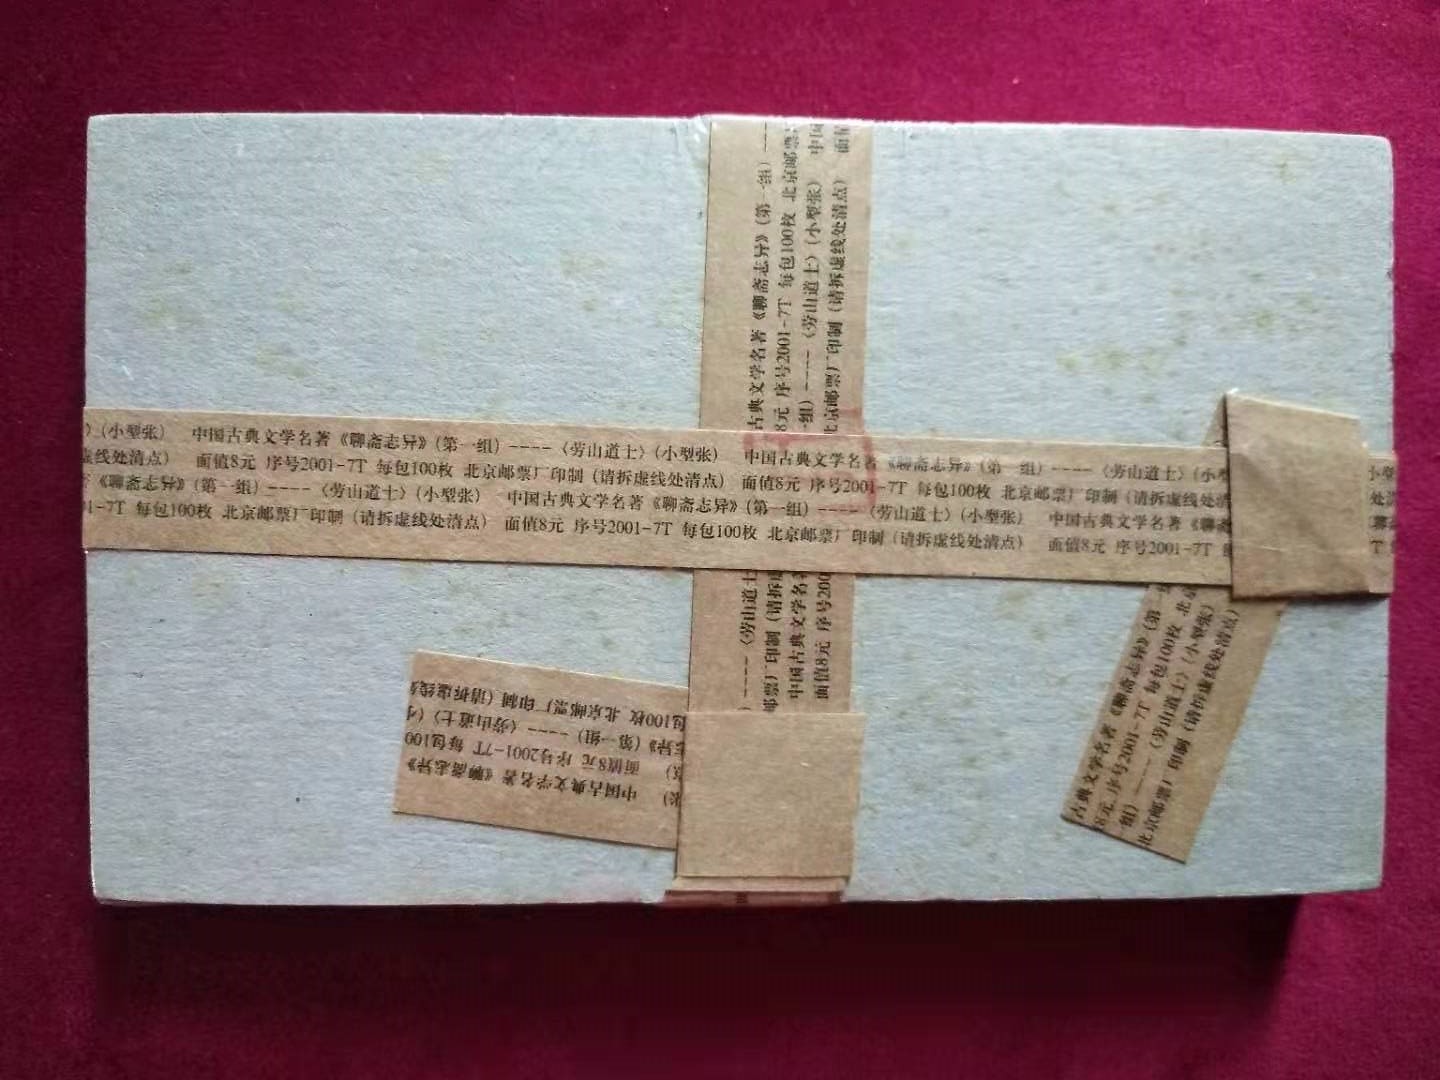 古典文学名著《聊斋志异》（第一组）——
8元 序号2001-7T 每包100枚 北京邮票
组）----〈劳山道士〉（小型张） 中国
北京邮票厂印制（请拆虚线处清点） 面值
〉（小型张） 中国古典文学名著《聊斋志异》（第一组）----〈劳山道士〉（小型张） 中国古典文学名著《聊斋志异》（第一组）----〈劳山道士〉（小型
虚线处清点） 面值8元 序号2001-7T 每包100枚 北京邮票厂印制（请拆虚线处清点） 面值8元 序号2001-7T 每包100枚 北京邮票厂印制（请拆虚线处清
《聊斋志异》（第一组）----〈劳山道士〉（小型张） 中国古典文学名著《聊斋志异》（第一组）----〈劳山道士〉（小型张） 中国古典文学名著《聊斋
1-7T 每包100枚 北京邮票厂印制（请拆虚线处清点） 面值8元 序号2001-7T 每包100枚 北京邮票厂印制（请拆虚线处清点） 面值8元 序号2001-7T
----〈劳山道士
邮票厂印制（请拆
中国古典文学名著
面值8元 序号200
中国古典文学名著《聊斋志异》
面值8元 序号2001-7T 每包100
异》（第一组）----〈劳山道士〉（小
包100枚 北京邮票厂印制（请拆虚线
古典文学名著《聊斋志异》（第一
8元 序号2001-7T 每包100枚 北京
组）----〈劳山道士〉（小型张）
北京邮票厂印制（请拆虚线处清点）